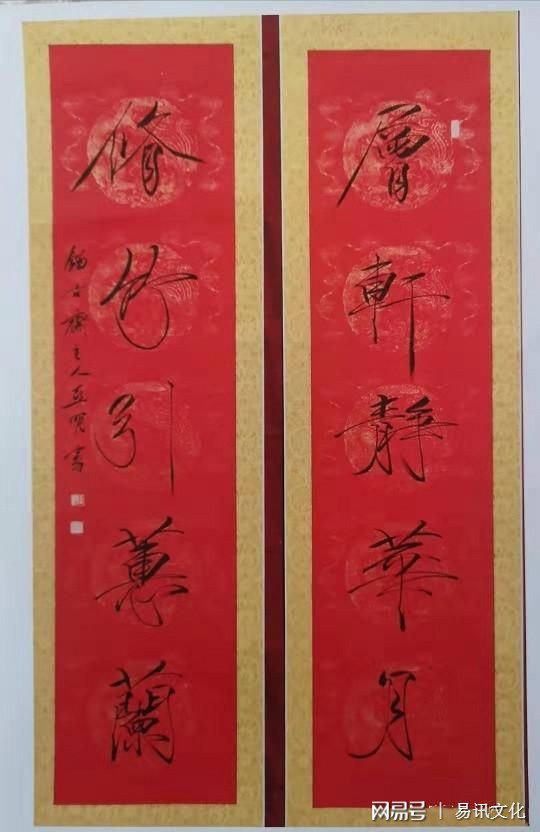 層軒靜華月
脩竹引蕙蘭
古齋主人亞明書
网易号 | 易讯文化